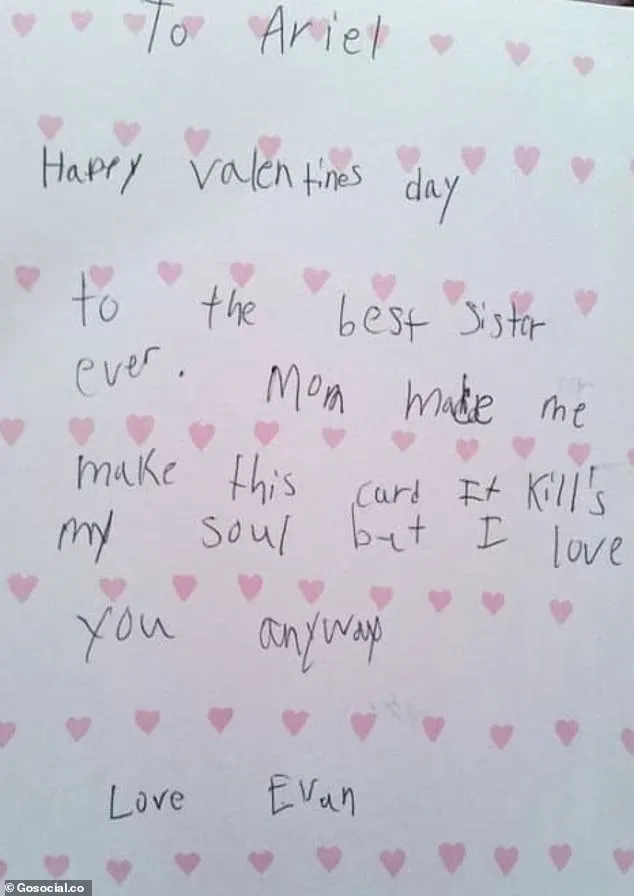 To Ariel
Happy valentines day
to the best sister
ever.
Mom made me
make this card It Kill's
my soul but I love
you anyway
Love Evan
© Gosocial.co